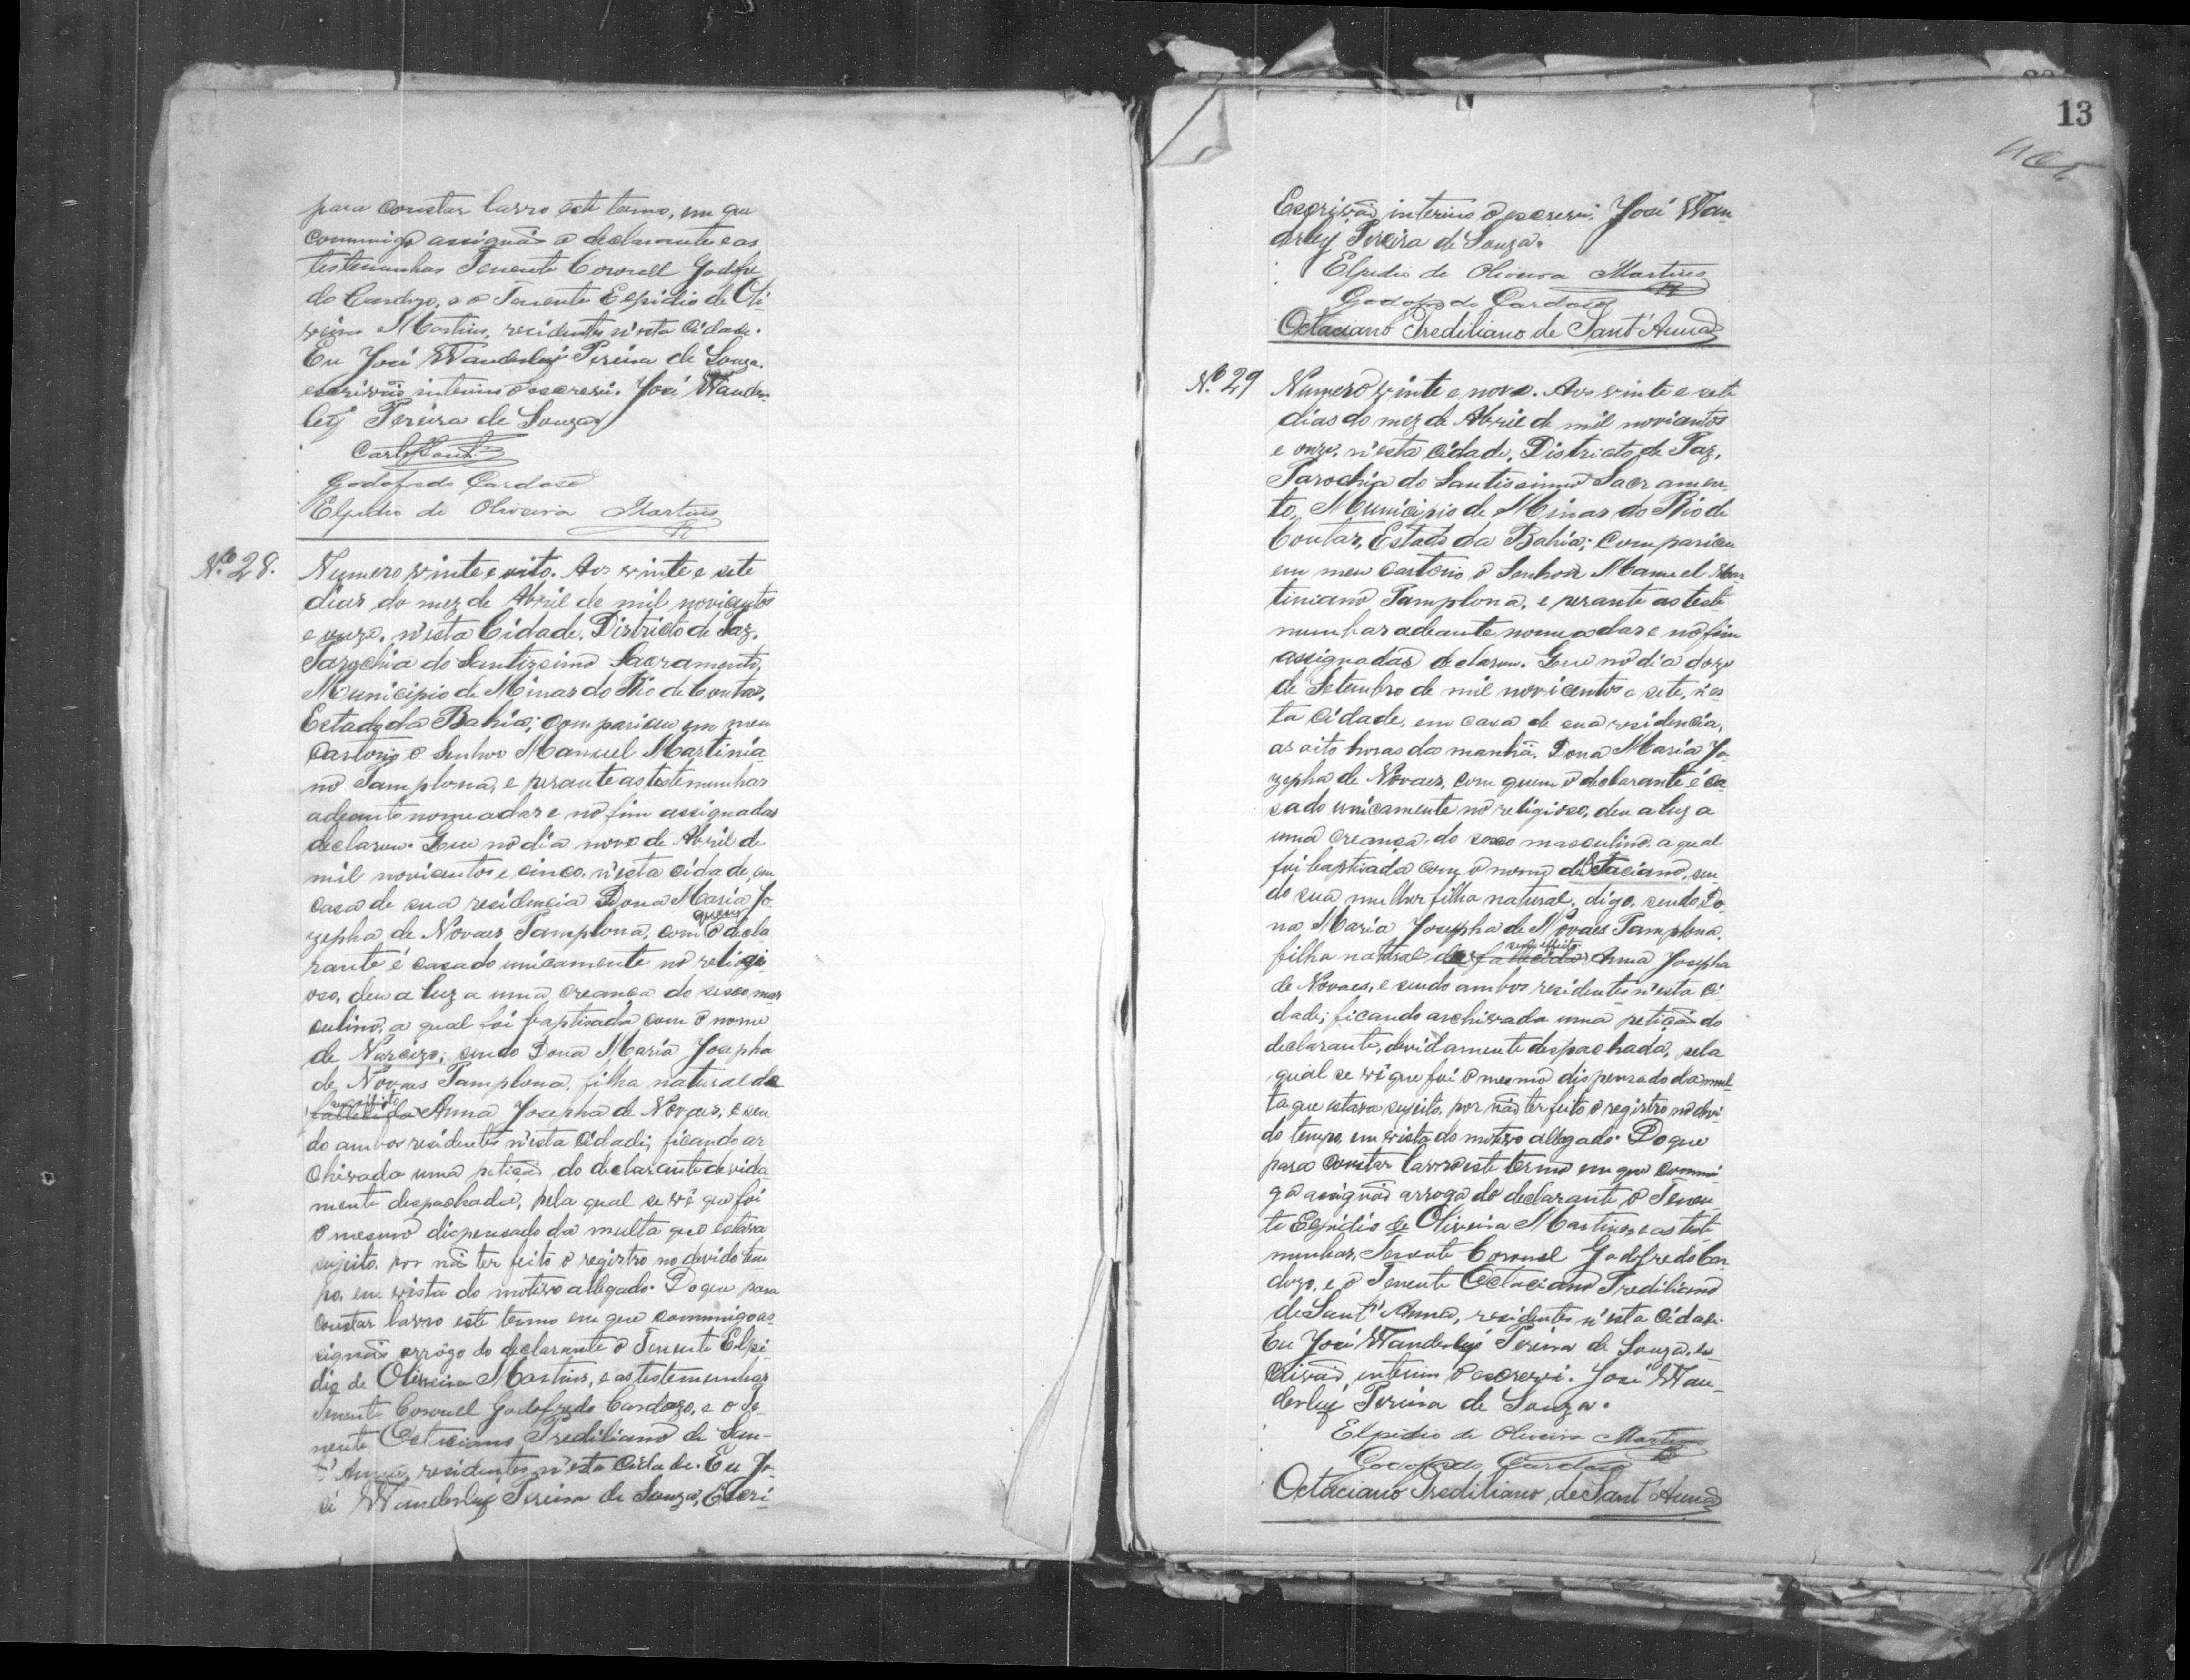 para constar lavro este termo, em que
commigo assignão o declarante e as
testemunhas Tenente Coronell Godofre
do Cardozo, e o Tenente Elpidio de Oli
veira Martins, residentes n'esta Cidade.
Eu José Wanderley Pereira de Souza,
escrivão interino o escrevi. José Wander
ley Pereira de Souza
Godofredo Cardoso
Elpidio de Oliveira Martins
Nº 28.
Numero vinte e oito. Aos vinte e sete
dias do mez de Abril de mil novicentos
e onze, n'esta Cidade, Districto de Paz,
Parochia do Santissimo Sacramento,
Municipio de Minas do Rio de Contas,
Estado da Bahia; compariceu em meu
Cartorio o Senhor Manuel Martinia
no Tamplona, e perante as testemunhas
adeante nomeadas e no fim assignadas
declarou. Que no dia nove de Abril de
mil novicentos e cinco, n'esta cidade, em
casa de sua residencia Dona Maria Jo
zepha de Novaes Tamplona, com quem o decla
rante é casado unicamente no religi
oso, deu a luz a uma creança do sexo mas
culino, a qual foi baptisada com o nome
de Narcizo; sendo Dona Maria Josepha
de Novaes Tamplona, filha natural de
sem effeito
fallecida Anna Josepha de Novaes, e sen
do ambos residentes n'esta Cidade; ficando ar
chivada uma petição do declarante devida
mente despachada, pela qual se vê que foi
o mesmo dispensado da multa que estava
sujeito, por não ter feito o registro no devido tem
po, em vista do motivo allegado. Do que para
constar lavro este termo em que commigo as
signão arrogo do declarante o Tenente Elpi
dio de Oliveira Martins, e as testemunhas
Tenente Coronel Godofredo Cardozo, e o Te-
nente Octaciano Trediliano de San-
t'Anna, residentes n'esta Cidade. Eu Jo-
sé Wanderley Pereira de Souza, Escri-
13
Escrivão interino o escrevi. José Wan
derley Pereira de Souza.
Elpidio de Oliveira Martins
Godofredo Cardoso
Octaciano Trediliano de Sant'Anna
Nº 29
Numero vinte e nove. Aos vinte e sete
dias do mez de Abril de mil novicentos
e onze, n'esta Cidade, Districto de Paz,
Parochia do Santissimo Sacramen
to, Municipio de Minas do Rio de
Contas, Estado da Bahia; compariceu
em meu Cartorio o Senhor Manuel Mar
tiniano Tamplona, e perante as teste
munhas adeante nomeadas e no fim
assignadas declarou. Que no dia doze
de Setembro de mil novicentos e sete, n'es
ta Cidade, em casa de sua residencia,
as oito horas da manhã, Dona Maria Jo
zepha de Novaes, com quem o declarante é ca
sado unicamente no religioso, deu a luz a
uma creança do sexo masculino, a qual
foi baptisada com o nome de Octaciano, sen
do sua mulher filha natural, digo, sendo Do
na Maria Josepha de Novaes Tamplona,
sem effeito
filha natural da fallecida Anna Josepha
de Novaes, e sendo ambos residentes n'esta Ci
dade; ficando archivada uma petição do
declarante, devidamente despachada, pela
qual se vê que foi o mesmo dispensado da mul
ta que estava sujeito, por não ter feito o registro no devi
do tempo, em vista do motivo allegado. Do que
para constar lavro este termo em que commi
go assignão arrogo do declarante o Tenen
te Elpidio de Oliveira Martins e as teste
munhas, Tenente Coronel Godofredo Car
dozo, e o Tenente Octaciano Trediliano
de Sant'Anna, residentes n'esta Cidade.
Eu José Wanderley Pereira de Souza, es
crivão interino o escrevi. José Wan-
derley Pereira de Souza.
Elpidio de Oliveira Martins
Godofredo Cardoso
Octaciano Trediliano de Sant'Anna